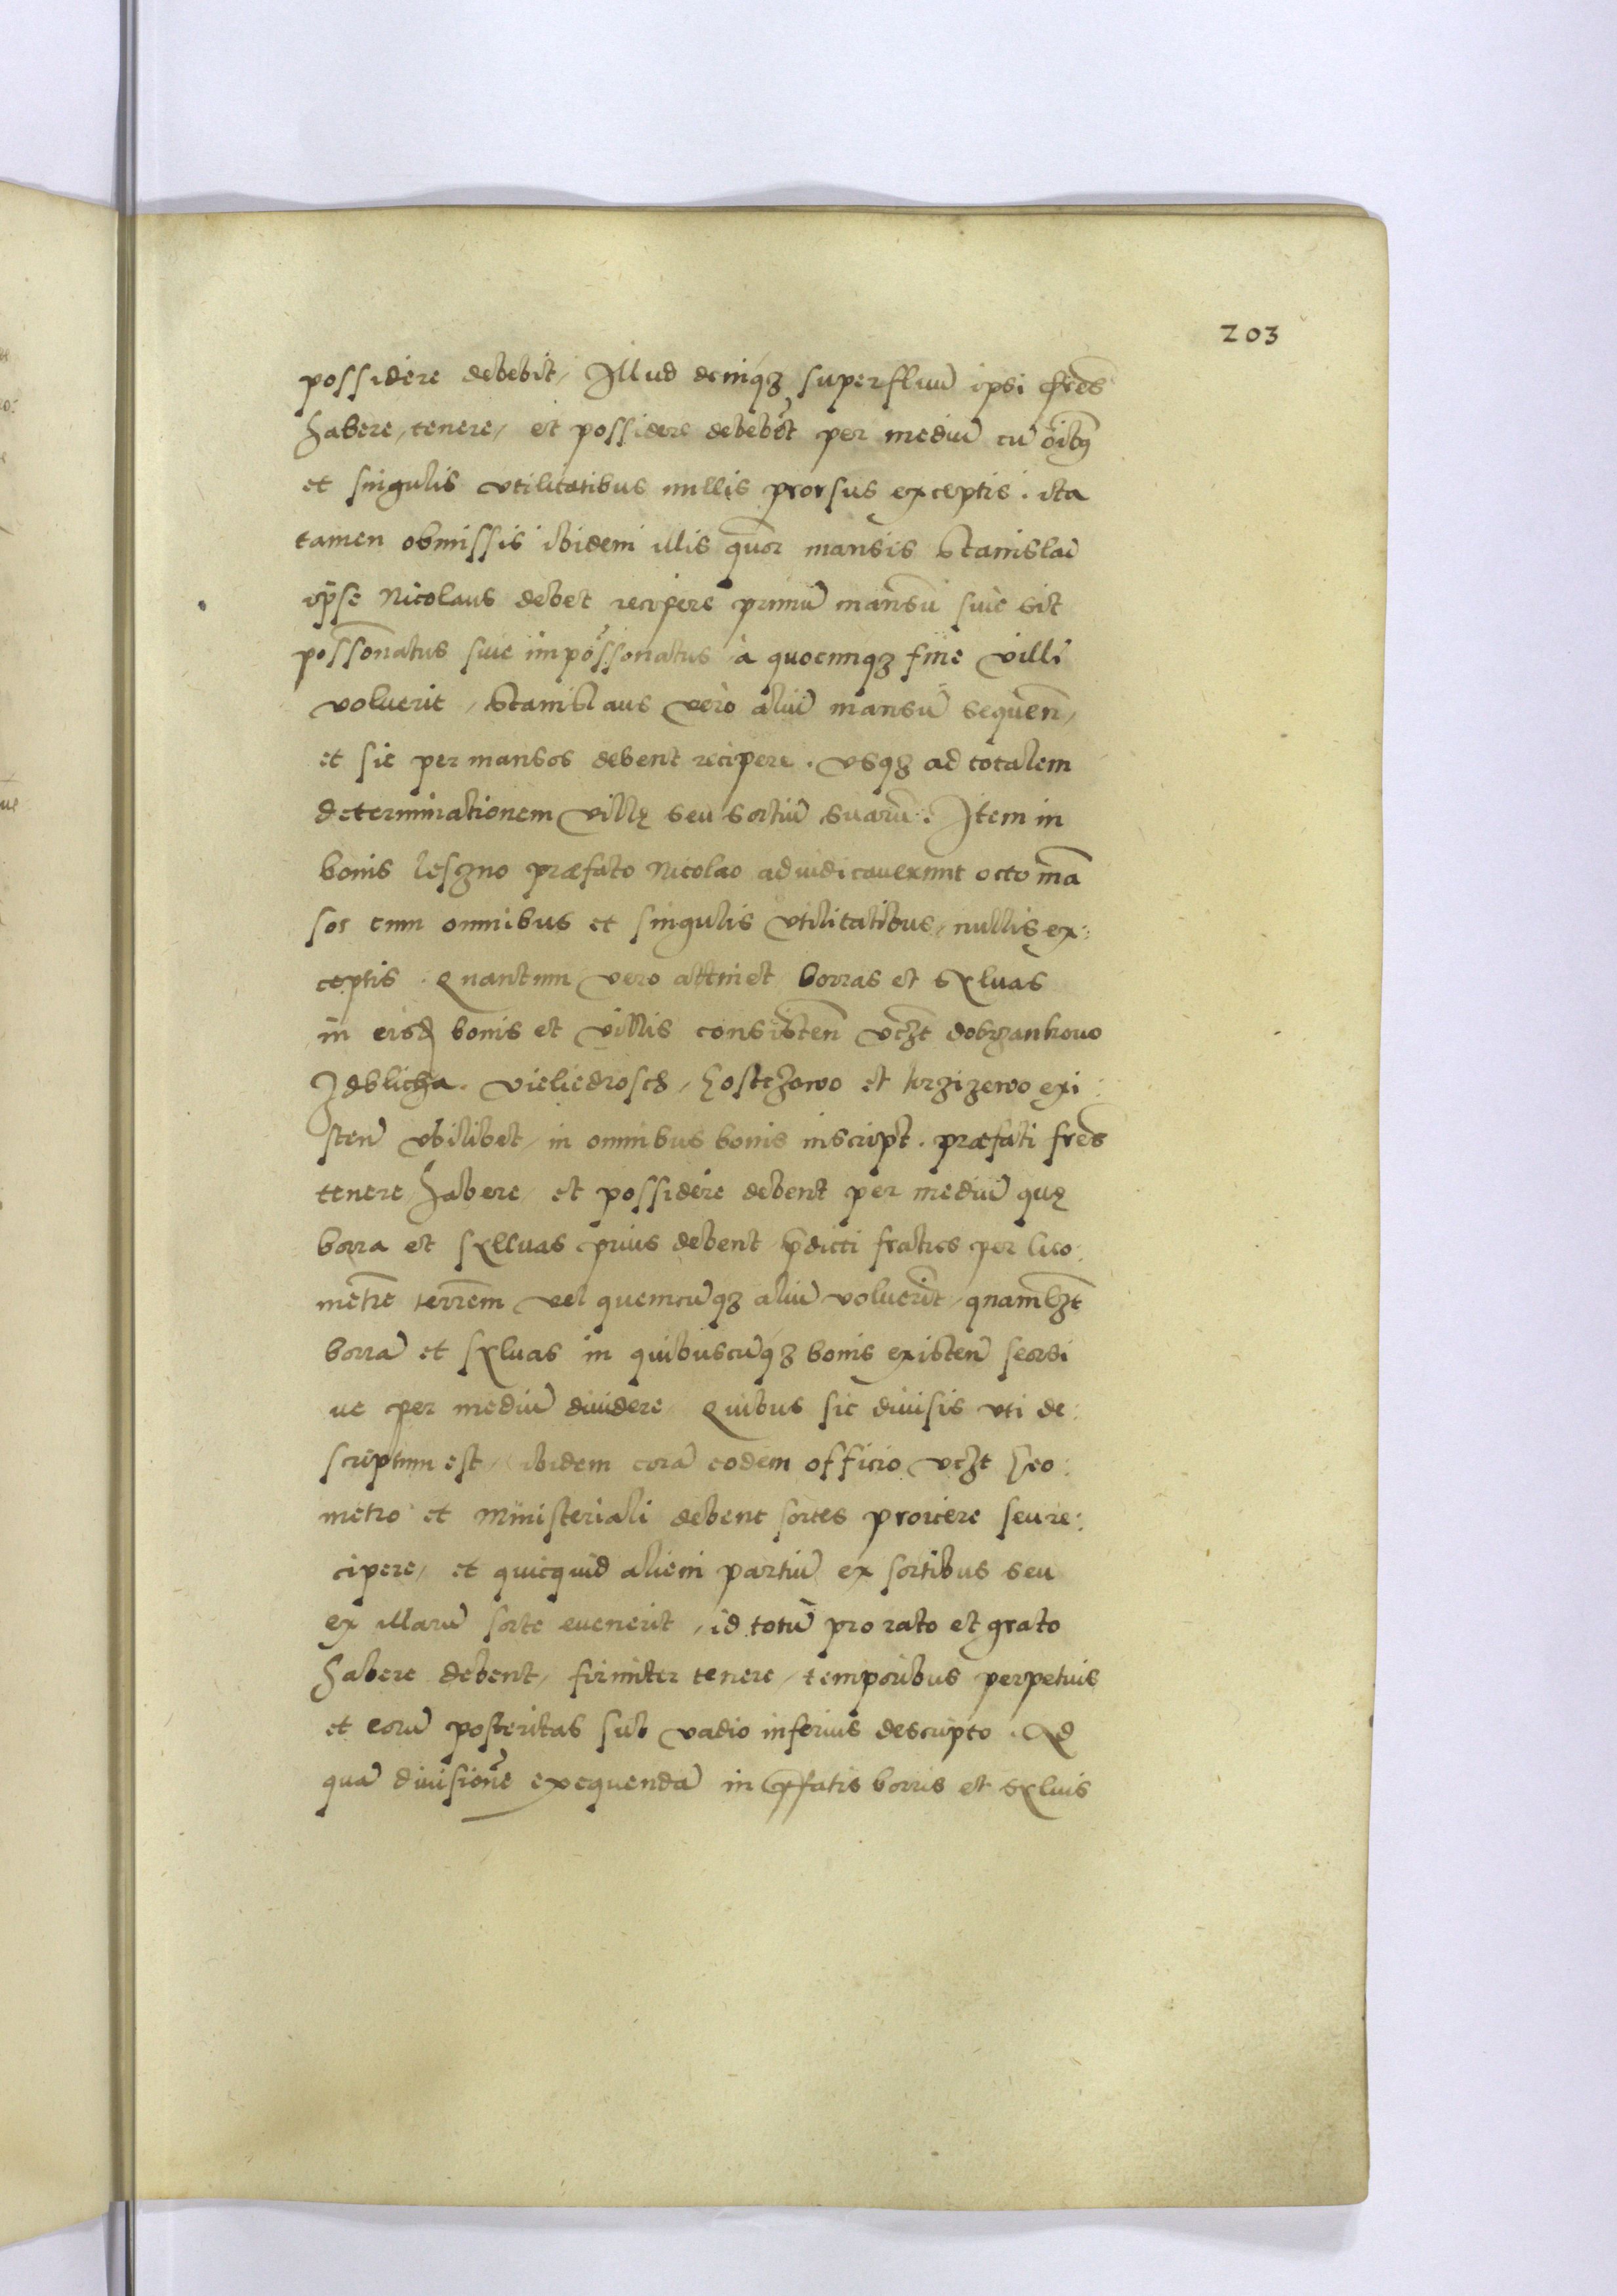 203
possidere debebit, Illud deniqȝ superfluũ ipsi fr̃es
habere, tenere, et possidere debeb̃t per mediũ cũ õibꝫ
et singulis vtilitatibus nullis prorsus exceptis. ita
tamen obmissis ibidem illis quõr mansis Stanislai
ipse Nicolaus debet recipere primũ mansũ siue sit
possõnatus siue impõssonatus à quocunqȝ fine villę
voluerit, Stanislaus vero aliũ mansũ sequeñ,
et sic per mansos debent recipere. vsqȝ ad totalem
determinationem villę seu sortiũ suarũ. Item in
bonis leszno præfato Nicolao adiudicauerunt octo mã
sos cum omnibus et singulis vtilitatibus, nullis ex:
ceptis. Quantum vero attinet borras et sÿluas
in eisd bonis et villis consisteñ vcȝt dobrzankouo
Idblicza. vieliedrosch, Hostczewo et krzizewo exi
steñ vbilibet, in omnibus bonis inscript. præfati fr̃es
tenere habere et possidere debent per mediũ quę
borra et sÿlluas prius debent p̃dicti fratres per Geo:
metrẽ terreṁ vel quemcũqȝ aliũ voluerĩt, quamlȝt
borrã et sÿluas in quibuscũqȝ bonis existeñ seorsi
ue per mediũ diuidere, Quibus sic diuisis vti de:
scriptum est, ibidem corã eodem officio vcȝt Geo:
metro et Ministeriali debent sortes proicere seu re:
cipere, et quicquid alicui partiũ ex sortibus seu
ex illarũ sorte euenerit, id totũ pro rato et grato
habere debent, firmiter tenere, temporibus perpetuis
et eorũ posteritas sub vadio inferius descripto. Ad
quã diuisionẽ exequendã in p̃fatis borris et sÿluis